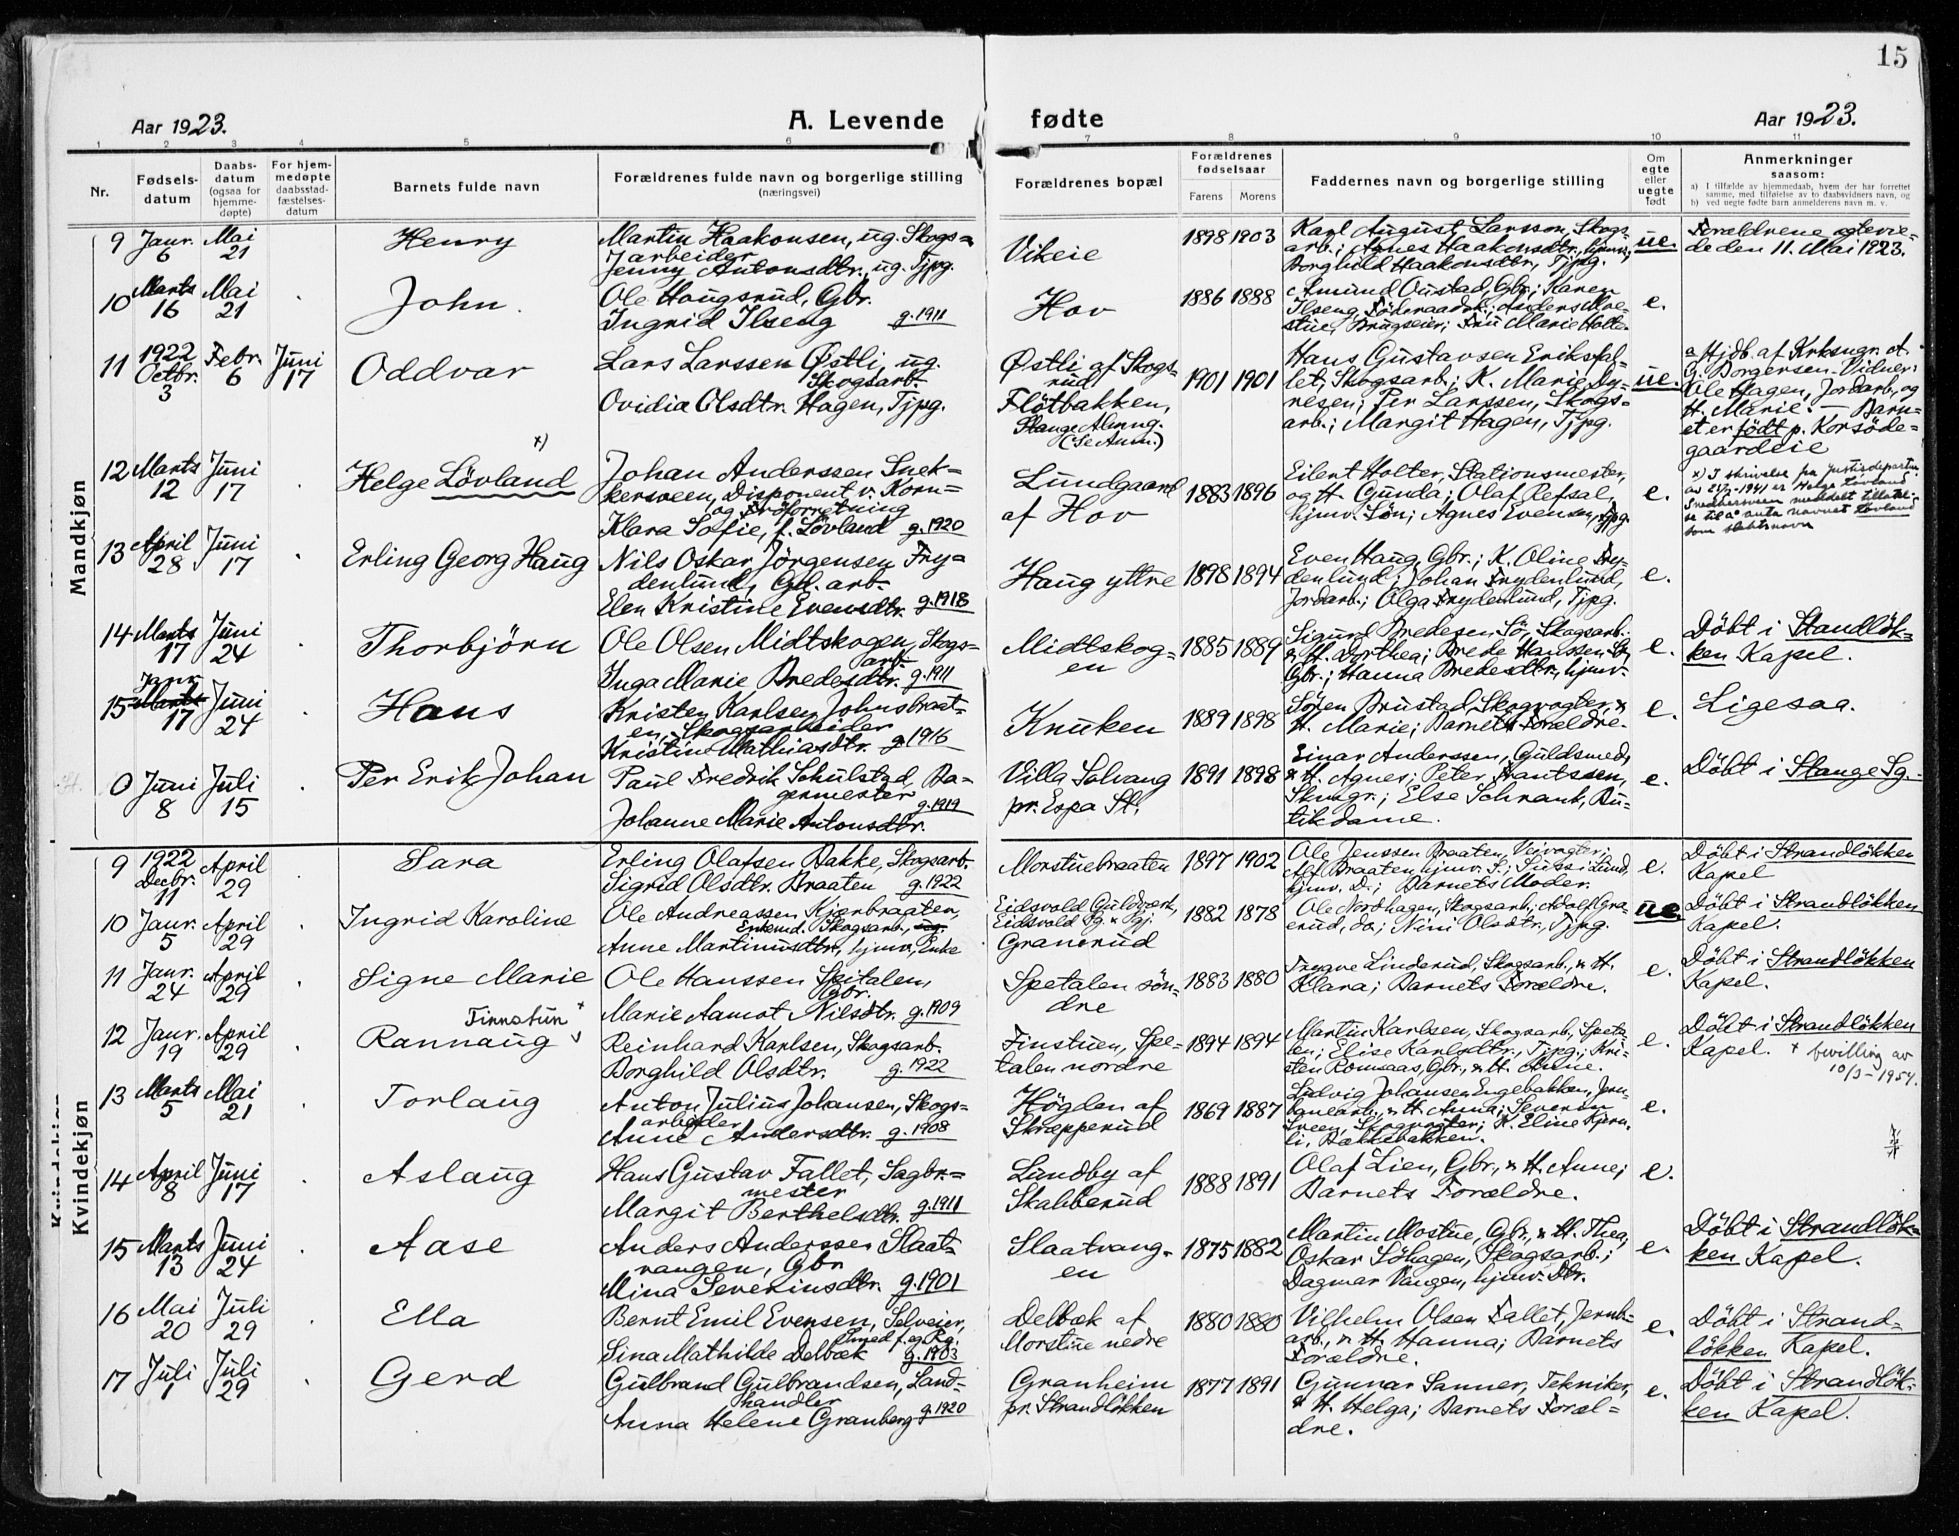 15
Aar 1923. A. Levende fødte Aar 1923.
1 2 3 4 5 6 7 8 9 10 11
Nr.
Fødsels-
datum
Daabs-
datum
(ogsaa for
hjemme-
døpte)
For hjem-
medøpte
daabsstad-
fæstelses-
datum
Barnets fulde navn
Forældrenes fulde navn og borgerlige stilling
(næringsvei)
Forældrenes bopæl
Forældrenes
fødselsaar
Farens Morens
Faddernes navn og borgerlige stilling
Om
egte
eller
uegte
født
Anmerkninger
saasom:
a) I tilfælde av hjemmedaab, hvem der har forrettet
samme, med tilføielse av to daabsvidners navn, og
b) ved uegte fødte barn anmelderens navn m. v.
Mandkjøn
9 Janr. 6 Mai 21
Henry
Martin Haakonsen, ug. Skogs=
arbeider
Jenny Antonsdtr., ug. Tjpg.
Vikeie
1898 1903
Karl August Larsson, Skogs-
arb.; Agnes Haakonsdtr., hjmv.;
Borghild Haakonsdtr., Tjpg.
ue.
Forældrene egtevie-
de den 11. Mai 1923.
10 Marts 16 Mai 21
John.
Ole Hougsrud, Gbr.
Ingrid Ilseng g. 1911
Hov
1886 1888
Amund Oustad, Gbr.; Karen
Ilseng, Föderaadsk.; Anders Moe-
stue, Brugseier; Fru Marie Holte.
e.
11 1922 Octbr. 3 Febr. 6 Juni 17
Oddvar
Lars Larssen Østli, ug.
Skogsarb.
Ovidia Olsdtr. Hagen, Tjpg.
Østli af Skogs-
rud
Flötbakken,
Stange Almng.
(Se Anm.)
1901 1901
Hans Gustavsen Eriksfal-
let, Skogsarb.; K. Marie Dy-
resen; Per Larssen, Skogs=
arb.; Margit Hagen, Tjpg.
ue.
a Hjdb. af Krksngr. A.
G. Borgersen. Vidner:
Ole Hagen, Jordarb., og
H. Marie. — Barn-
et er født p. Korsöde-
gaardeie
12 Marts 12 Juni 17
x)
Helge Lövland
Johan Anderssen Snek-
kersveen, Disponent v. Korn=
og Fröforretning
Klara Sofie, f. Lövland g. 1920
Lundgaard
af Hov
1883 1896
Eilert Holter, Stationsmester,
og H. Gunda; Olaf Refsal,
hjmv. Sön; Agnes Evensen, Tjpg.
e.
x) I skrivelse fra Justisdepartm.
av 1941 er Helge Lövland
Snekkersveen meddelt tillatel-
se til å anta navnet Lövland
som slektsnavn
13 April 28 Juni 17
Erling Georg Haug
Nils Oskar Jörgensen Fry=
denlund, Gbl. arb.
Elen Kristine Evensdtr. g. 1918
Haug yttre
1898 1894
Even Haug, Gbr.; K. Oline Fry-
denlund; Johan Frydenlund,
Jordarb.; Olga Frydenlund, Tjpg.
e.
14 Marts 17 Juni 24
Thorbjörn
Ole Olsen Midtskogen, Skogs=
arb.
Inga Marie Bredesdtr. g. 1911
Midtskog=
en
1885 1889
Sigurd Bredesen Sö, Skogsarb.,
& H. Dorthea; Brede Hanssen Sö,
Gbr.; Hanna Bredesdtr., hjmv.
e.
Döbt i Standlök-
ken Kapel.
15 Janr. Marts 17 Juni 24
Hans
Kristen Karlsen Johnsbraat-
en, Skogsarbeider
Kristine Mathiasdtr. g. 1916
Knuken
1889 1898
Sören Brustad, Skogvogter, &
H. Marie; Barnets Forældre.
e.
Ligesaa.
0 Juni 8 Juli 15
Per Erik Johan
Paul Fredrik Schulstad, Ba-
germester
g. 1919
Johanne Marie Antonsdtr.
Villa Solvang
pr. Espa St.
1891 1898
Einar Anderssen, Guldsmed,
& H. Agnes; Peter Hantssen,
Skmgr.; Else Schrank, Bu-
tikdame.
e.
Döbt i Stange Sg.
Kvindekjøn
9 1922 Decbr. 11 April 29
Sara
Erling Olafsen Bakke, Skogsarb.
Sigrid Olsdtr. Braaten g. 1922
Morstuebraaten
1897 1902
Ole Jenssen Braaten, Veivogter;
Alf Braaten, hjmv. S.; Sussi Lund,
hjmv. D.; Barnets Moder.
e.
Döbt i Strandlökken
Kapel
10 Janr. 5 April 29
Ingrid Karoline
Ole Andreassen Kjernbraaten,
Enkemd. Skogsarb.,
Anne Martinusdtr., hjmv., Enke
Eidsvold Guldværk,
Eidsvold Pg. & Pgj.
Granerud
1882 1878
Ole Nordhagen, Skogsarb.; Adolf Gra-
erud, do; Nini Olsdtr., Tjpg.
ue.
Döbt i Strandlökken
Kapel.
11 Janr. 24 April 29
Signe Marie
Ole Hanssen Spitalen,
Gbr.
Marie Aamot Nilsdtr. g. 1909
Spetalen sön-
dre
1883 1880
Trygve Linderud, Skogsarb., & H.
Klara; Barnets Forældre.
e.
Döbt i Strandlökken
Kapel.
12 Janr. 19 April 29
Finnstun x
Rannaug
Reinhard Karlsen, Skogsarb.
Borghild Olsdtr. g. 1922
Finstuen, Spe-
talen nordre
1894 1894
Martin Karlsen, Skogsarb., Speta-
len; Elise Karlsdtr., Tjpg.; Kri-
sten Romsaas, Gbr., & H. Anne.
e.
Döbt i Strandlökken
Kapel. x bevilling av
10/3-1954.
13 Marts 5 Mai 21
Torlaug
Anton Julius Johansen, Skogs=
arbeider
Anne Andersdtr. g. 1908
Högden af
Skrepperud
1869 1887
Ludvig Johansen Engebakken, Jern-
banearb., & H. Anna; Severin
Sveen, Skogvogter; K. Eline Kjern-
li, Bakkebakken.
e.
14 April 8 Juni 17
Aslaug
Hans Gustav Fallet, Sagbr.=
mester
Margit Berthelsdtr. g. 1911
Lundby af
Skabberud
1888 1891
Olaf Lien, Gbr., & H. Anne;
Barnets Forældre.
e.
15 Marts 13 Juni 24
Aase
Anders Anderssen Slaat-
vangen, Gbr
Mina Severinsdtr. g. 1901
Slaatvang-
en
1875 1882
Martin Mostue, Gbr., & H. Thea;
Oskar Söhagen, Skogsarb.;
Dagmar Vangen, hjmv. Dtr.
e.
Döbt i Strandlök-
ken Kapel.
16 Mai 20 Juli 29
Ella
Bernt Emil Evensen, Selveier,
Smed f. eg. Rg.
Sina Mathilde Delbæk g. 1903
Delbæk af
Morstue nedre
1880 1880
Vilhelm Olsen Fallet, Jernb-
arb., & H. Hanna; Barnets
Forældre.
e.
Döbt i Strand-
lökken Kapel.
17 Juli 1 Juli 29
Gerd
Gulbrand Gulbrandsen, Land-
handler
Anna Helene Granberg g. 1920
Granheim
pr. Strandlökken
1877 1891
Gunnar Sanner, Tekniker,
& H. Helga; Barnets Foræl=
dre.
e.
Döbt i Strandlök-
ken Kapel.